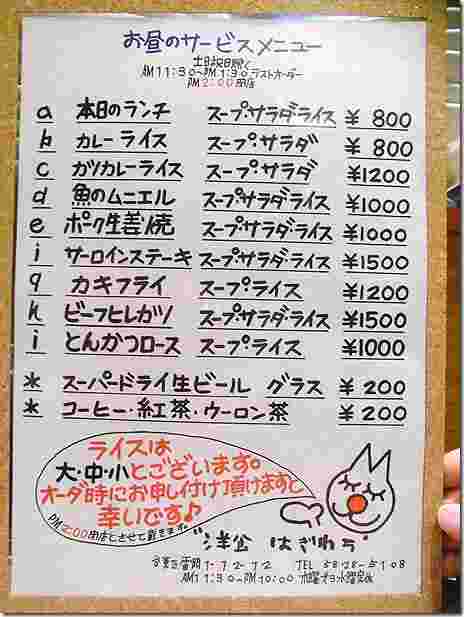 お昼のサービスメニュー
土日祝日除く
AM11:30~PM1:30ラストオーダー
PM2:00閉店
a 本日のランチ スープ・サラダ・ライス ¥800
b カレーライス スープ・サラダ ¥800
c カツカレーライス スープ・サラダ ¥1200
d 魚のムニエル スープサラダ・ライス ¥1000
e ポーク生姜焼 スープサラダ・ライス ¥1000
i サーロインステーキ スープサラダ・ライス ¥1500
g カキフライ スープ・ライス ¥1200
h ビーフヒレカツ スープサラダ・ライス ¥1500
i とんかつロース スープ・ライス ¥1000
* スーパードライ生ビール グラス ¥200
* コーヒー・紅茶・ウーロン茶 ¥200
ライスは
大・中・小とございます。
オーダ時にお申し付け頂けますと
幸いです♪
PM2:00閉店とさせて戴きます。
洋食 はぎわら
1-12-12 TEL 5828-5108
AM11:30~PM10:00